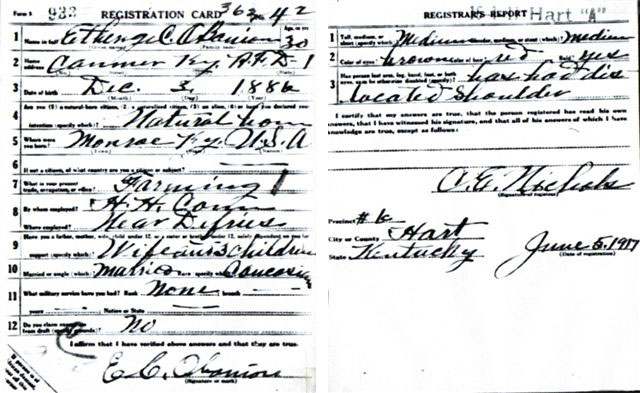 Form 1 933 REGISTRATION CARD 363 No. 42
1 Name in full Ethenge C. Obanion Age, in yrs. 30
2 Home address Canmer Ky. R.F.D-1
3 Date of birth Dec. 3, 1886
4 Are you (1) a natural-born citizen, (2) a naturalized citizen, (3) an alien, (4) or have you declared your
intention (specify which)? Natural born
5 Where were you born? Monroe Ky. U.S.A
6 If not a citizen, of what country are you a citizen or subject?
7 What is your present trade, occupation, or office? Farming
8 By whom employed? H.H.
Where employed? Near Defries
9 Have you a father, mother, wife, child under 12, or a sister or brother under 12, solely dependent on you for
support (specify which)? Wife and 3 children
10 Married or single (which)? Married Race (specify which)? Caucasian
11 What military service have you had? Rank None branch
years Nation or State
12 Do you claim exemption from draft (specify grounds)? No
I affirm that I have verified above answers and that they are true.
E C. Obanion
(Signature or mark)
REGISTRAR'S REPORT
Hart "A"
1 Tall, medium, or short (specify which)? Medium Slender, medium, or stout (which)? Medium
2 Color of eyes? brown Color of hair? red Bald? yes
3 Has person lost arm, leg, hand, foot, or both eyes, or is he otherwise disabled (specify)? has had dis
located shoulder
I certify that my answers are true, that the person registered has read his own
answers, that I have witnessed his signature, and that all of his answers of which I have
knowledge are true, except as follows:
C. E. Nichols
(Signature of registrar)
Precinct
City or County Hart
State Kentucky June 5, 1917
(Date of registration)
If person is of